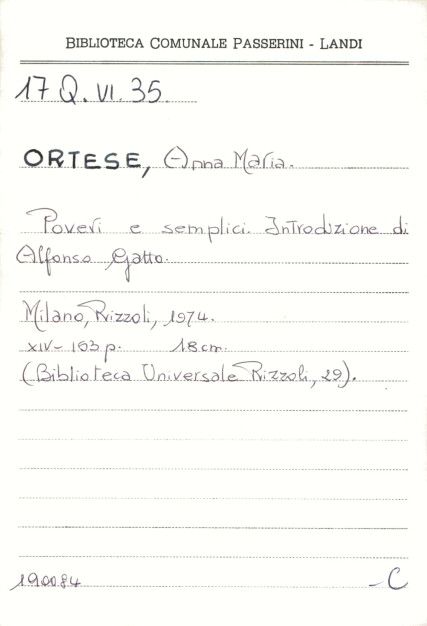 BIBLIOTECA COMUNALE PASSERINI - LANDI
17 Q. VI. 35
ORTESE, Anna Maria.
Poveri e semplici. Introduzione di
Alfonso Gatto.
Milano, Rizzoli, 1974.
XIV- 163 p. 18 cm.
(Biblioteca Universale Rizzoli, 29).
190084
- C